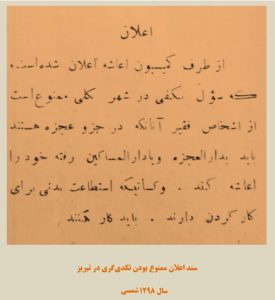 اعلان
از طرف کمیسیون اعاشه اعلان شده است
که سؤل بکفی در شهر کلی ممنوع است
از اشخاص فقیر آنانکه در جزو عجزه هستند
باید بدارالعجزه ویادارالمساکین رفته خود را
اعاشه کنند . وکسانیکه استطاعت بدنی برای
کار کردن دارند . باید کار کنند
سند اعلان ممنوع بودن تکدی‌گری در تبریز
سال ۱۲۹۸ شمسی